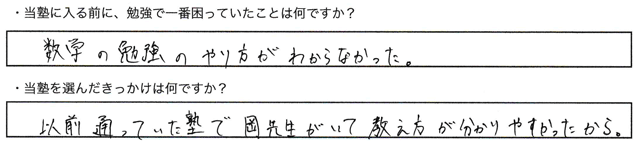 ・当塾に入る前に、勉強で一番困っていたことは何ですか？
数学の勉強のやり方がわからなかった。
・当塾を選んだきっかけは何ですか？
以前通っていた塾で岡先生がいて教え方が分かりやすかったから。